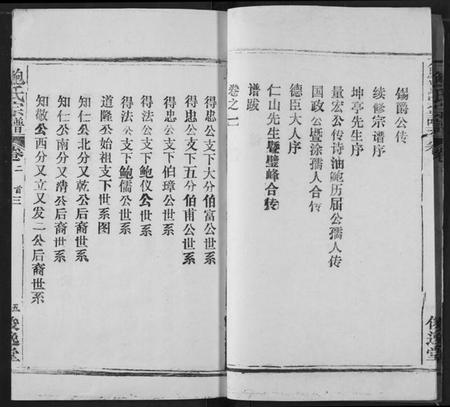 錫爵公传
续修宗谱序
坤亭先生序
量宏公传诗油鲍历屈公孺人传
国政公暨涂孺人合传
德臣大人序
仁山先生暨璧峰合传
谱跋
卷之二
得忠公支下大分伯富公世系
得忠公支下五分伯甫公世系
得忠公支下伯璋公世系
得法公支下鲍仪公世系
得法公支下鲍儒公世系
道隆公始祖支下世系图
知仁公北分又乾公后裔世系
知仁公南分又清公后裔世系
知敬公西分又立又发二公后裔世系
鲍氏宗谱
卷二
首三
五
俊逸堂
俊逸堂